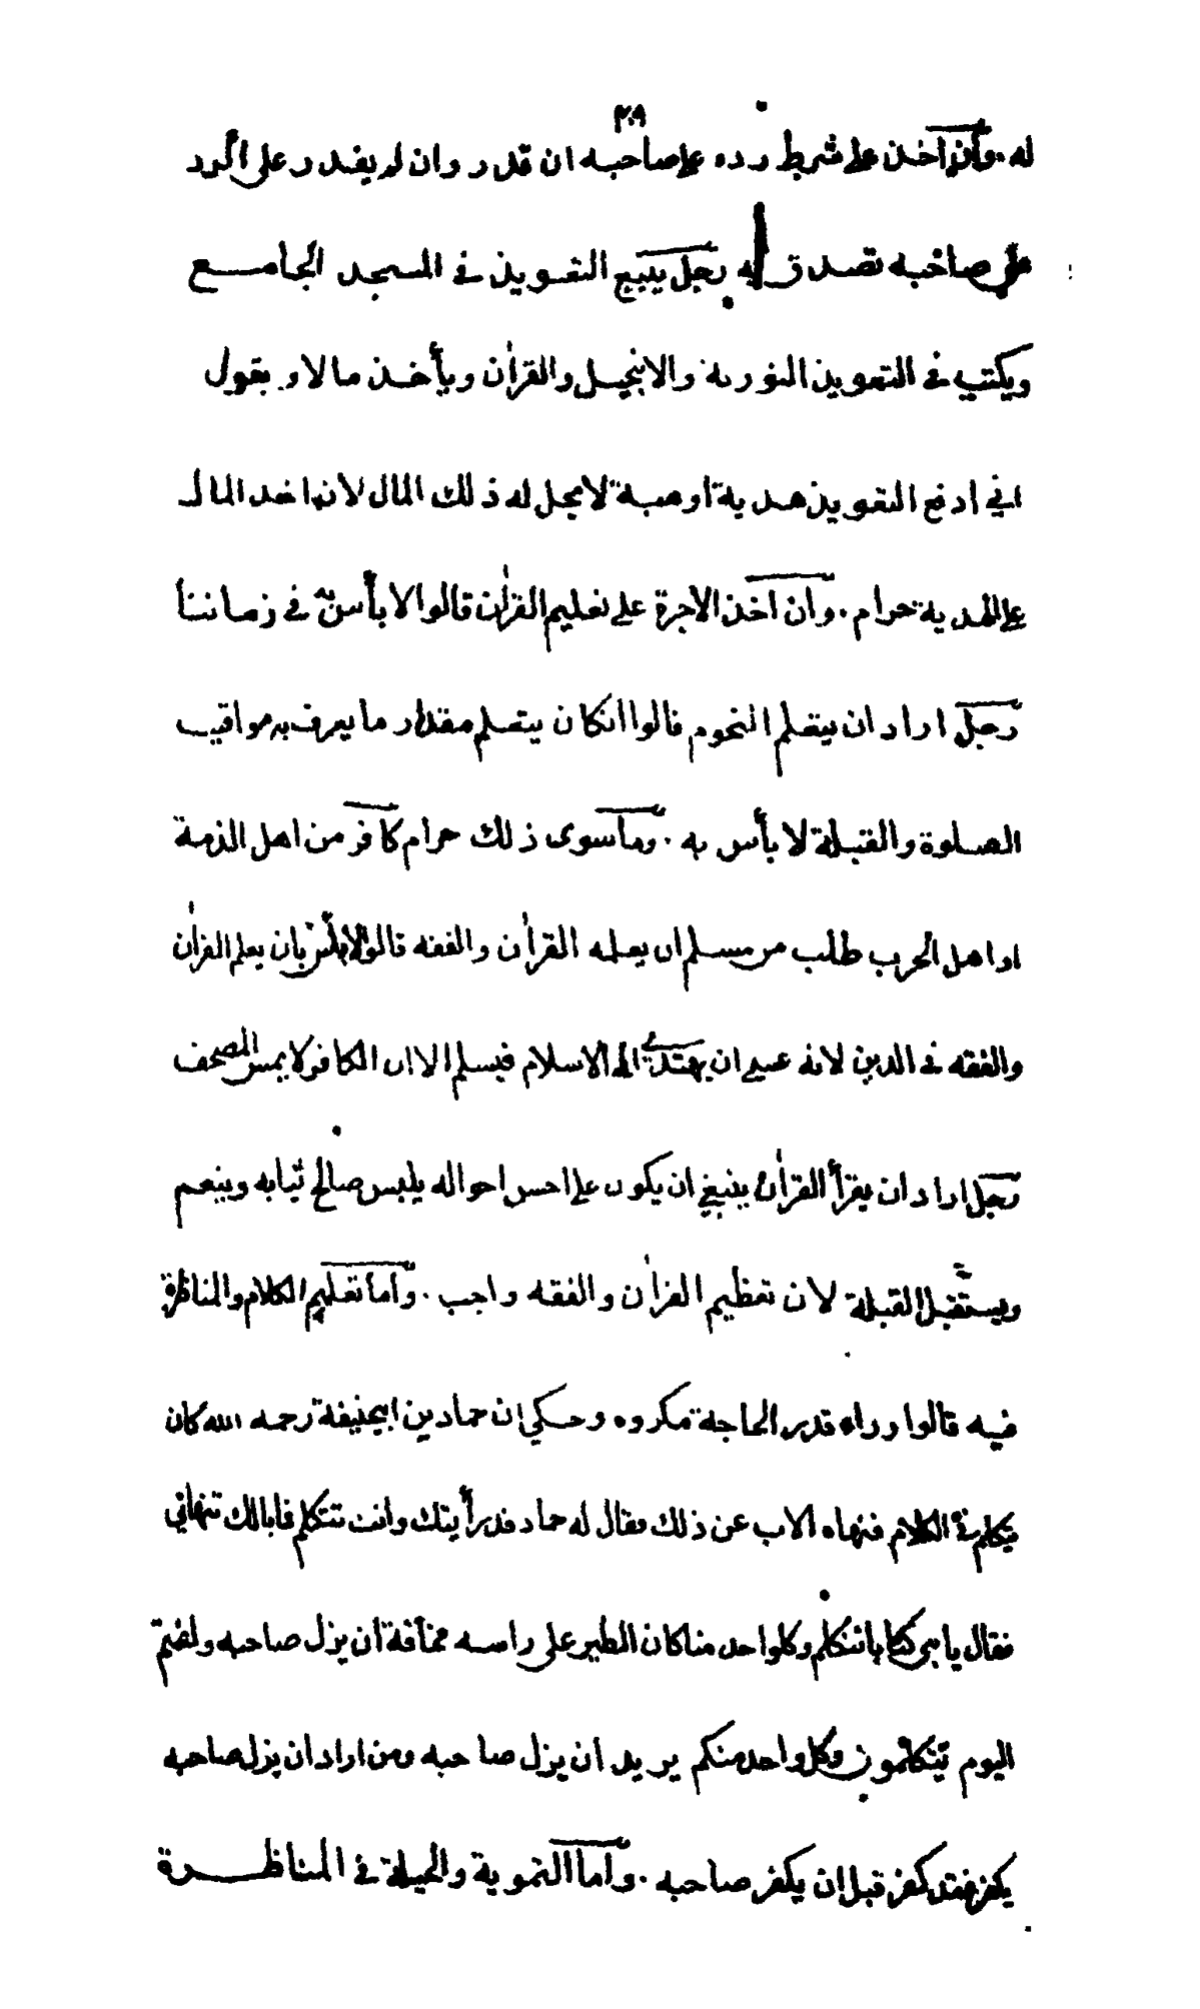 ٢٠٩
له. وان اخذ على شرط رده على صاحبه ان قدر وان لم يقدر على الرد
على صاحبه تصدق به رجل يبيع التعويذ في المسجد الجامع
ويكتب في التعويذ التورىة والانجيل والقرآن ويأخذ مالا و يقول
اني ادفع التعويذ هدية او هبة لا يحل له ذلك المال لانه اخذ المال
على الهدية حرام. وان اخذ الاجرة على تعليم القرآن قالوا لا بأس به في زماننا
رجل اراد ان يتعلم النجوم قالوا انكان يتعلم مقدار ما يعرف به مواقيت
الصلوة والقبلة لا بأس به. وما سوى ذلك حرام كافر من اهل الذمة
او اهل الحرب طلب من مسلم ان يعلمه القرآن والفقه قالوا لا بأس بان يعلم القرآن
والفقه في الدين لانه عسى ان يهتدي الى الاسلام فيسلم الا ان الكافر لا يمس المصحف
رجل اراد ان يقرأ القرآن ينبغي ان يكون على احسن احواله يلبس صالح ثيابه ويتعمم
ويستقبل القبلة لان تعظيم القرآن والفقه واجب. واما تعليم الكلام والمناظرة
فيه قالوا وراء قدر الحاجة مكروه وحكي ان حماد بن ابيحنيفة رحمه الله كان
يتكلم في الكلام فنهاه الاب عن ذلك فقال له حماد قد رأيتك وانت تتكلم فما بالك تنهاني
فقال يا بني كنا نتكلم وكلواحد منا كان الطير على راسه مخافة ان يزل صاحبه وانتم
اليوم تتكلمون وكل واحد منكم يريد ان يزل صاحبه ومن اراد ان يزل صاحبه
يكفر فقد كفر قبل ان يكفر صاحبه. واما التمويه والحيلة في المناظرة